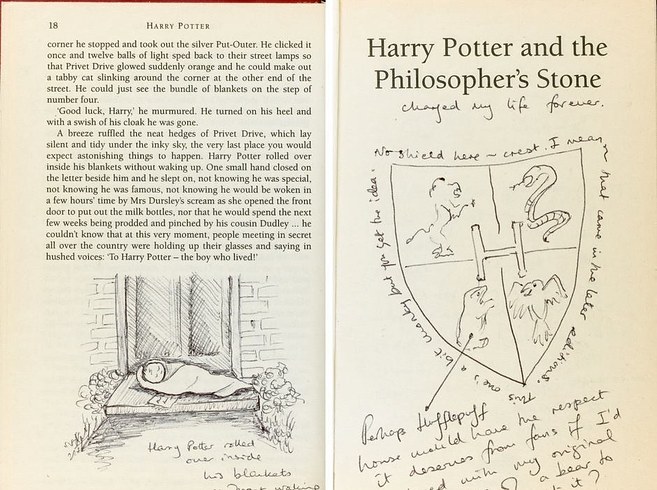 18 HARRY POTTER
corner he stopped and took out the silver Put-Outer. He clicked it
once and twelve balls of light sped back to their street lamps so
that Privet Drive glowed suddenly orange and he could make out
a tabby cat slinking around the corner at the other end of the
street. He could just see the bundle of blankets on the step of
number four.
‘Good luck, Harry,’ he murmured. He turned on his heel and
with a swish of his cloak he was gone.
A breeze ruffled the neat hedges of Privet Drive, which lay
silent and tidy under the inky sky, the very last place you would
expect astonishing things to happen. Harry Potter rolled over
inside his blankets without waking up. One small hand closed on
the letter beside him and he slept on, not knowing he was special,
not knowing he was famous, not knowing he would be woken in
a few hours’ time by Mrs Dursley’s scream as she opened the front
door to put out the milk bottles, nor that he would spend the next
few weeks being prodded and pinched by his cousin Dudley ... he
couldn’t know that at this very moment, people meeting in secret
all over the country were holding up their glasses and saying in
hushed voices: ‘To Harry Potter – the boy who lived!’
Harry Potter rolled
over inside
his blankets
without waking
Harry Potter and the
Philosopher’s Stone
changed my life forever.
No shield here ~ crest. I mean
that came in the later editions.
This one is a bit wonky but you get the idea.
H
Perhaps Hufflepuff
house would have the respect
it deserves from fans if I'd
with my original
a bear to
it?